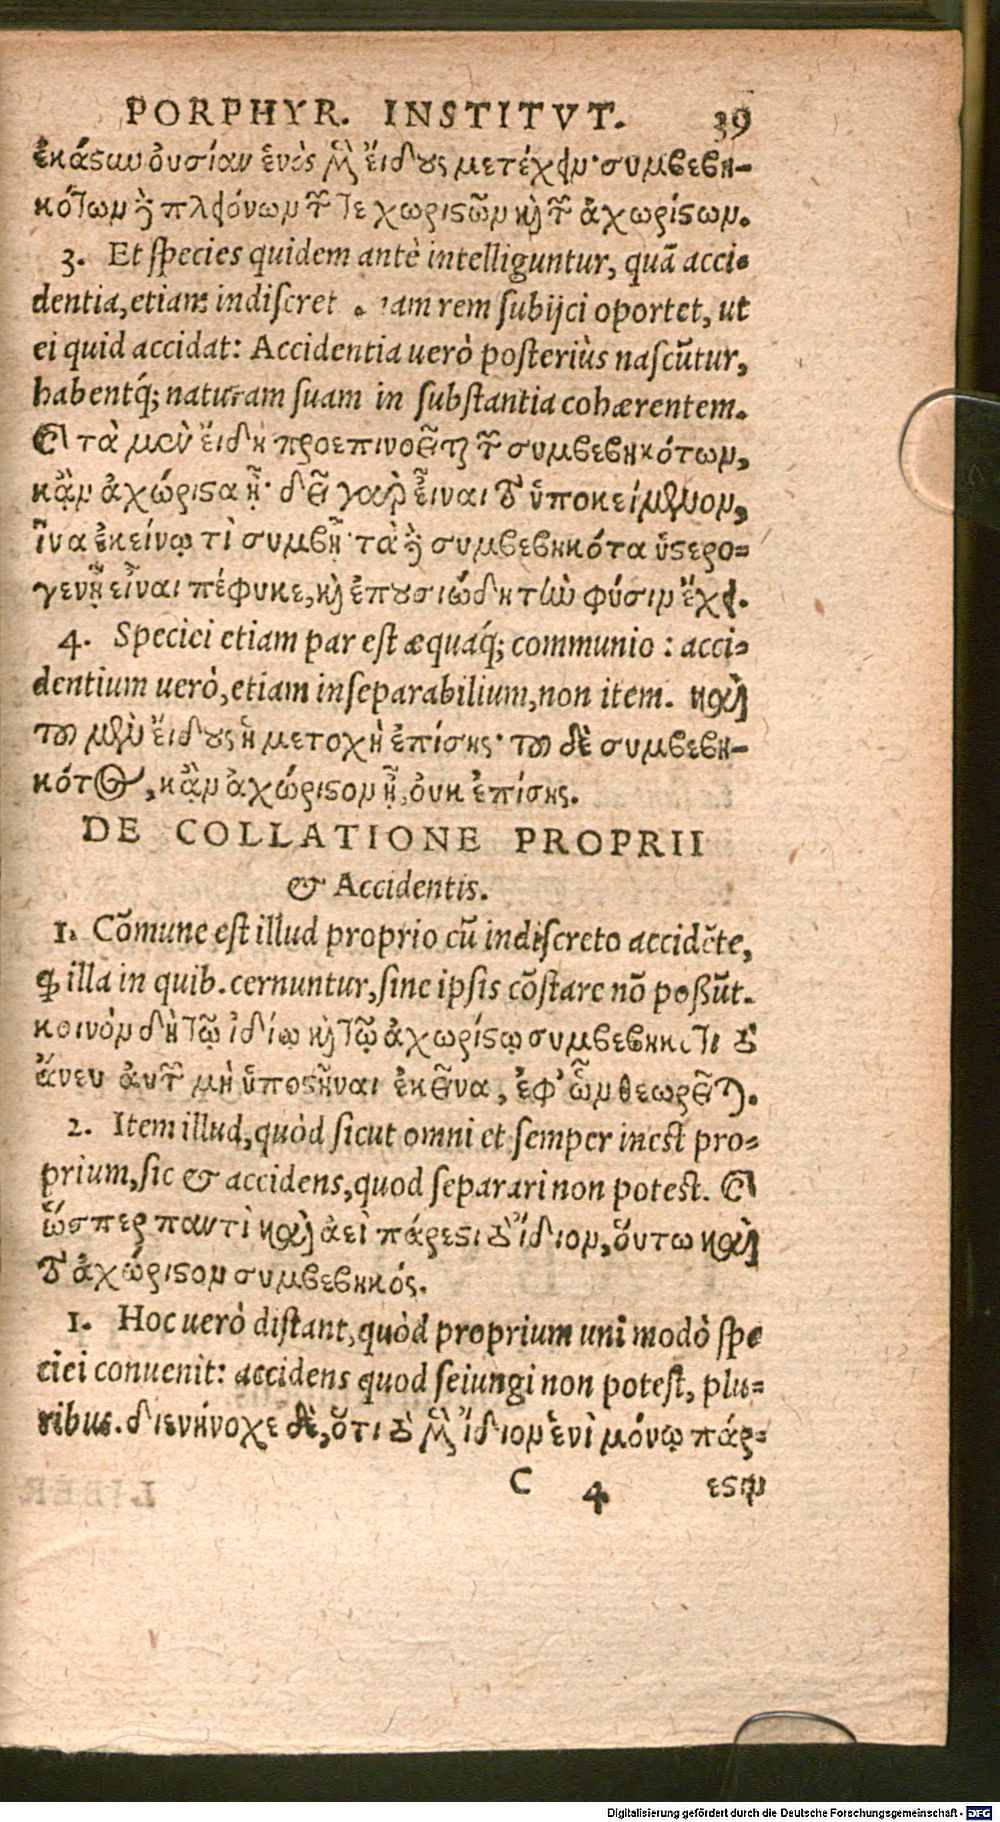 PORPHYR. INSTITVT. 39
ἑκάστων οὐσίαν ἑνὸς μὲν εἴδους μετέχειν· συμβεβη-
κότων δὲ πλειόνων τῶν τε χωριστῶν καὶ τῶν ἀχωρίστων.
3. Et species quidem antè intelliguntur, quā acci-
dentia, etiam indiscret am rem subijci oportet, ut
ei quid accidat: Accidentia uerò posteriùs nascūtur,
habentq́; naturam suam in substantia cohærentem.
καὶ τὰ μὲν εἴδη προεπινοεῖται τῶν συμβεβηκότων,
κἂν ἀχώριστα ᾖ· δεῖ γὰρ εἶναι τὸ ὑποκείμενον,
ἵνα ἐκείνῳ τὶ συμβῇ· τὰ δὲ συμβεβηκότα ὑστερο-
γενῆ εἶναι πέφυκε, καὶ ἐπουσιώδη τὴν φύσιν ἔχει.
4. Speciei etiam par est æquaq́; communio : acci-
dentium uerò, etiam inseparabilium, non item. καὶ
τοῦ μὲν εἴδους ἡ μετοχὴ ἐπίσης· τοῦ δὲ συμβεβη-
κότος, κἂν ἀχώριστον ᾖ, οὐκ ἐπίσης.
DE COLLATIONE PROPRII
& Accidentis.
1. Cōmune est illud proprio cū indiscreto accidēte,
ꝙ illa in quib. cernuntur, sine ipsis cōstare nō possūt.
κοινὸν δὴ τῷ ἰδίῳ καὶ τῷ ἀχωρίστῳ συμβεβηκότι τὸ
ἄνευ αὐτῶν μὴ ὑποστῆναι ἐκεῖνα, ἐφ' ὧν θεωρεῖται.
2. Item illud, quòd sicut omni et semper inest pro-
prium, sic & accidens, quod separari non potest. καὶ
ὥσπερ παντὶ καὶ ἀεὶ πάρεστι τὸ ἴδιον, οὕτω καὶ
τὸ ἀχώριστον συμβεβηκός.
1. Hoc uerò distant, quòd proprium uni modò spe
ciei conuenit: accidens quod seiungi non potest, plu-
ribus. διενήνοχε δὲ, ὅτι τὸ μὲν ἴδιον ἑνὶ μόνῳ πάρ-
C 4 εστιν
Digitalisierung gefördert durch die Deutsche Forschungsgemeinschaft - DFG